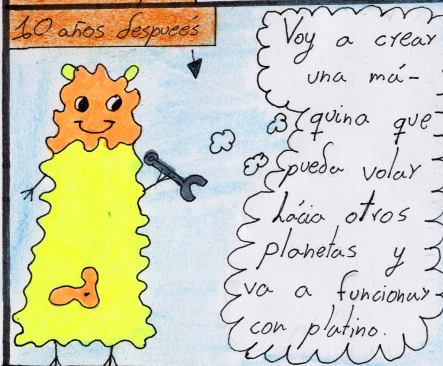 10 años despueés
Voy a crear
una má-
quina que
pueda volar
hácia otros
planetas y
va a funcionar
con platino.